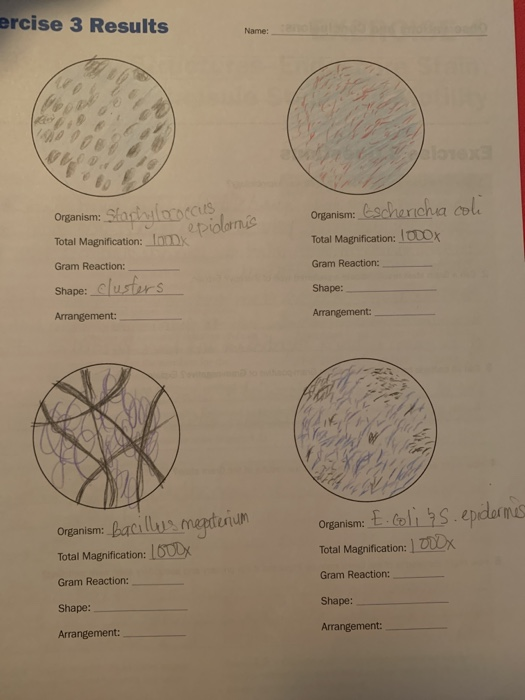 ercise 3 Results
Name:
Organism: Staphylococcus
epidermis
Total Magnification: 1000x
Gram Reaction:
Shape: clusters
Arrangement:
Organism: Escherichia coli
Total Magnification: 1000x
Gram Reaction:
Shape:
Arrangement:
Organism: Bacillus megaterium
Total Magnification: 1000x
Gram Reaction:
Shape:
Arrangement:
Organism: E. coli & S. epidermis
Total Magnification: 1000x
Gram Reaction:
Shape:
Arrangement: